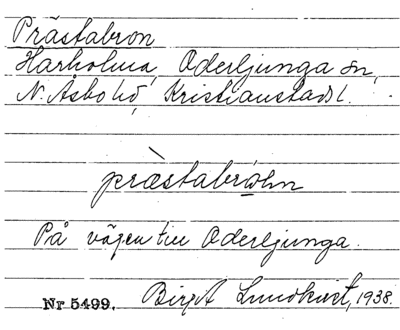 Prästabron
Harholma, Oderljunga sn,
N. Åsbo hd, Kristianstads l.
præstabro̱n
På vägen till Oderljunga.
Nr 5499. Birgit Lundkvist, 1938.